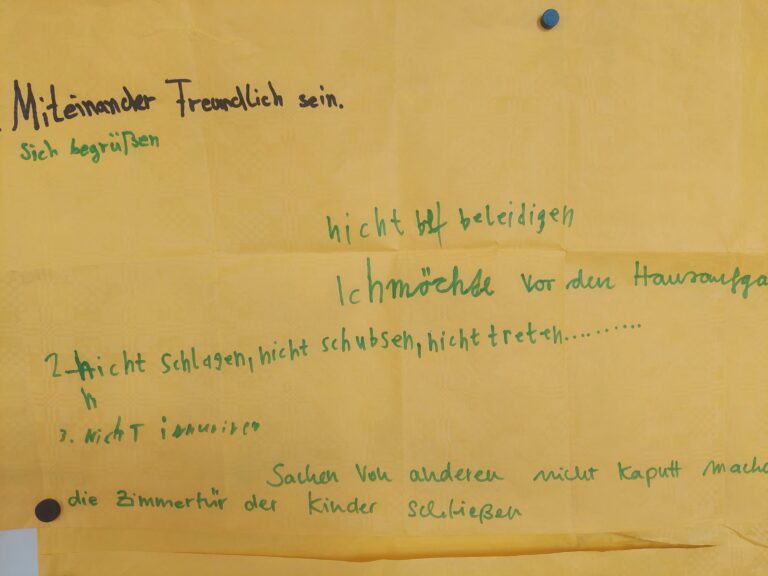 Miteinander Freundlich sein.
Sich begrüßen
nicht beleidigen
Ich möchte vor den Hausaufga
2. nicht schlagen, nicht schubsen, nicht treten..........
n
3. NichT
Sachen von anderen nicht kaputt mache
die Zimmertür der Kinder schließen